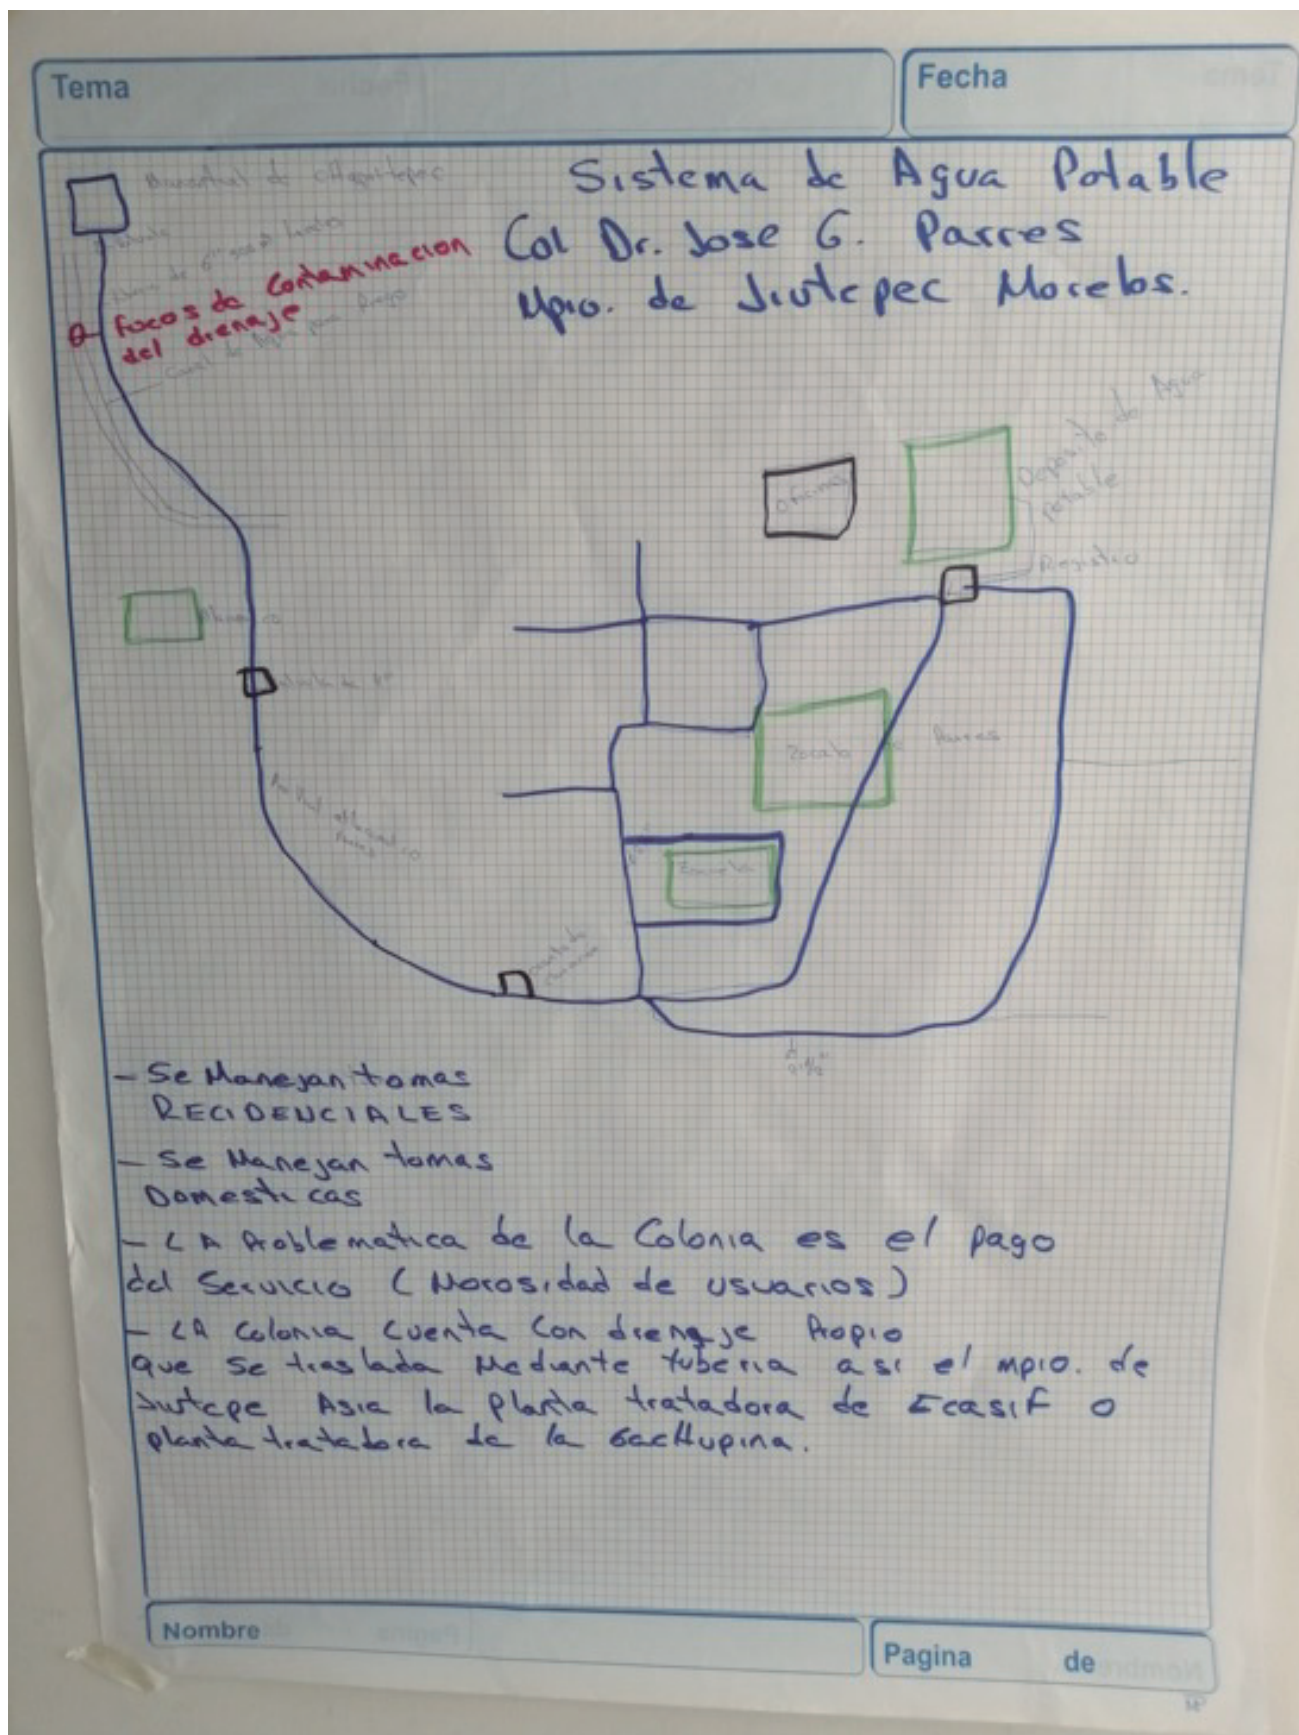 Tema
Fecha
Sistema de Agua Potable
Col Dr. Jose G. Parres
Mpio. de Jiutepec Morelos.
Manantial de
focos de contaminacion
del drenaje
Canal de Agua para Riego
Oficinas
Deposito de Agua
potable
Registro
Zocalo
Parres
Escuela
- Se Manejan tomas
RECIDENCIALES
- Se Manejan tomas
Domesticas
- LA Problematica de la Colonia es el pago
del Servicio (Morosidad de usuarios)
- LA Colonia cuenta Con drenaje Propio
que se traslada Mediante tuberia asi el mpio. de
Jiutepe Asia la planta tratadora de Ecasif o
planta tratadora de la GacHupina.
Nombre
Pagina de